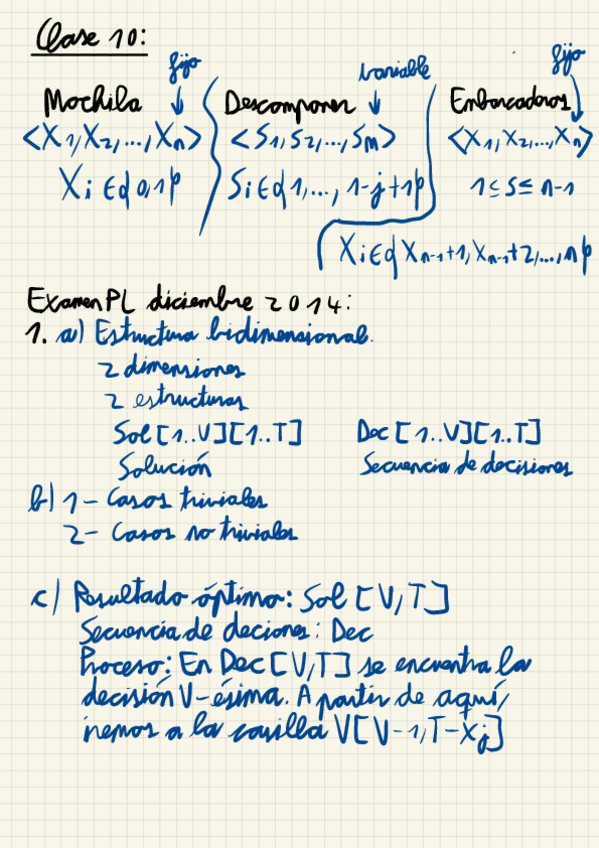 Clase 10:
fijo variable fijo
Mochila ↓ Descomponer ↓ Embarcaderos
<X1,X2,...,Xn> <S1,S2,...,SM> <X1,X2,...,Xn>
Xi∈{0,1} Si∈{1,...,1-j+1} 1≤S≤n-1
Xi∈{Xn-1+1,Xn-1+2,...,n}
Examen PL diciembre 2014:
1. a) Estructura bidimensional.
2 dimensiones
2 estructuras
Sol[1..V][1..T] Dec[1..V][1..T]
Solución Secuencia de decisiones
b) 1- Casos triviales
2- Casos no triviales
c) Resultado óptimo: Sol[V,T]
Secuencia de deciones: Dec
Proceso: En Dec[V,T] se encuentra la
decisión V-ésima. A partir de aquí,
iremos a la casilla V[V-1,T-Xj]